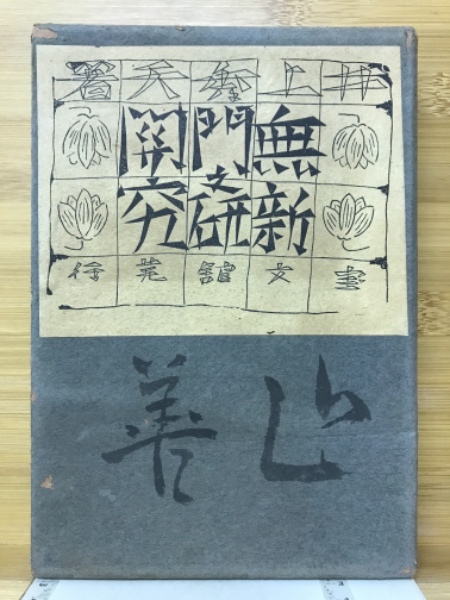 井上秀天著
無門関
之
新研究
宝文館発行
善